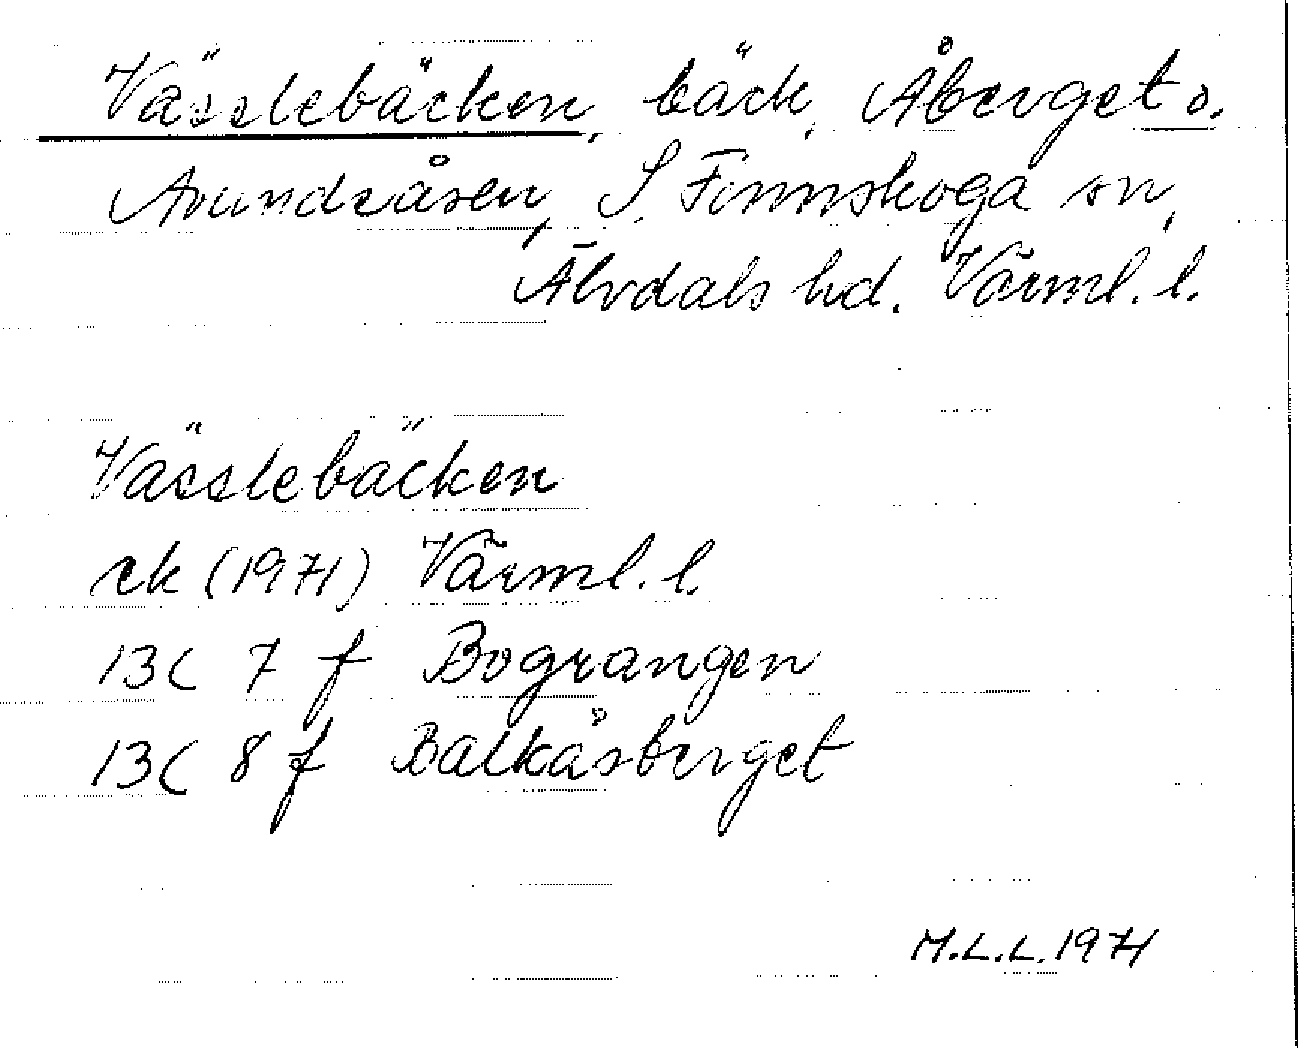 Vässlebäcken, bäck, Åberget o.
Avundsåsen, S. Finnskoga sn,
Älvdals hd. Värml. l.
Vässlebäcken
ek (1971) Värml. l.
13C 7 f Bograngen
13C 8 f Balkåsberget
M.L.L. 1971